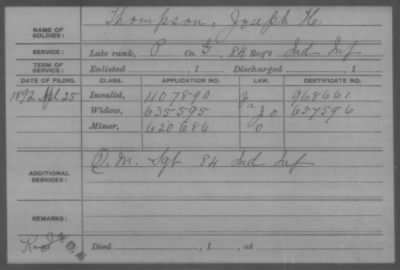 NAME OF SOLDIER: Thompson, Joseph H.
SERVICE: Late rank, P Co. G, 84 Reg't Ind Inf
TERM OF SERVICE: Enlisted , 1 Discharged , 1
DATE OF FILING. CLASS. APPLICATION NO. LAW. CERTIFICATE NO.
1892 25 Invalid, 1107890 J 968661
Widow, 635595 657596
Minor, 620686 O
ADDITIONAL SERVICES: Q. M. Sgt 84 Ind Inf
REMARKS:
Died , 1 , at